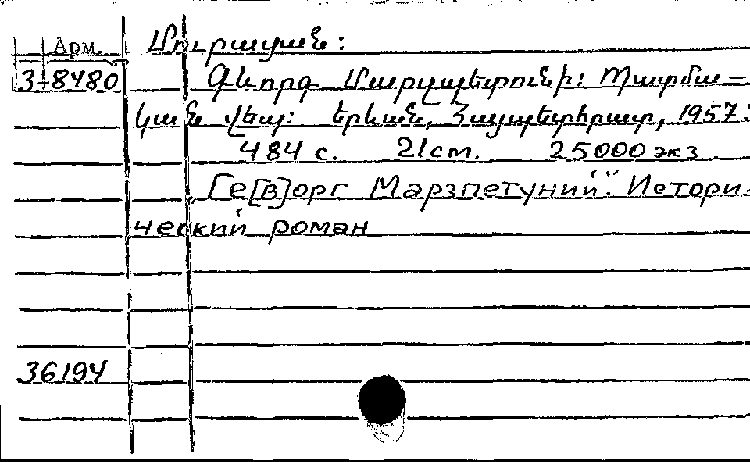 Арм. Մուրացան:
3-8480 Գևորգ Մարզպետունի: Պատմա-
կան վեպ: Երևան, Հայպետհրատ, 1957:
484 с. 21см. 25000 экз
Ге[в]орг Марзпетуний". Истори-
ческий роман
36194